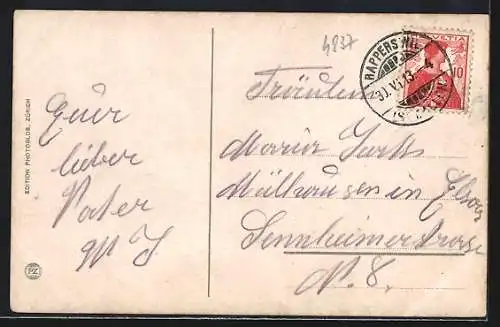 4837
RAPPERSWIL
30.VI.13. 4
(ST. GALLEN)
HELVETIA
10
Fräulein
Maria
Mülhausen in Elsass
Sennheimerstrasse
N. 8.
Euer
lieber
Vater
EDITION PHOTOGLOB, ZÜRICH
PZ